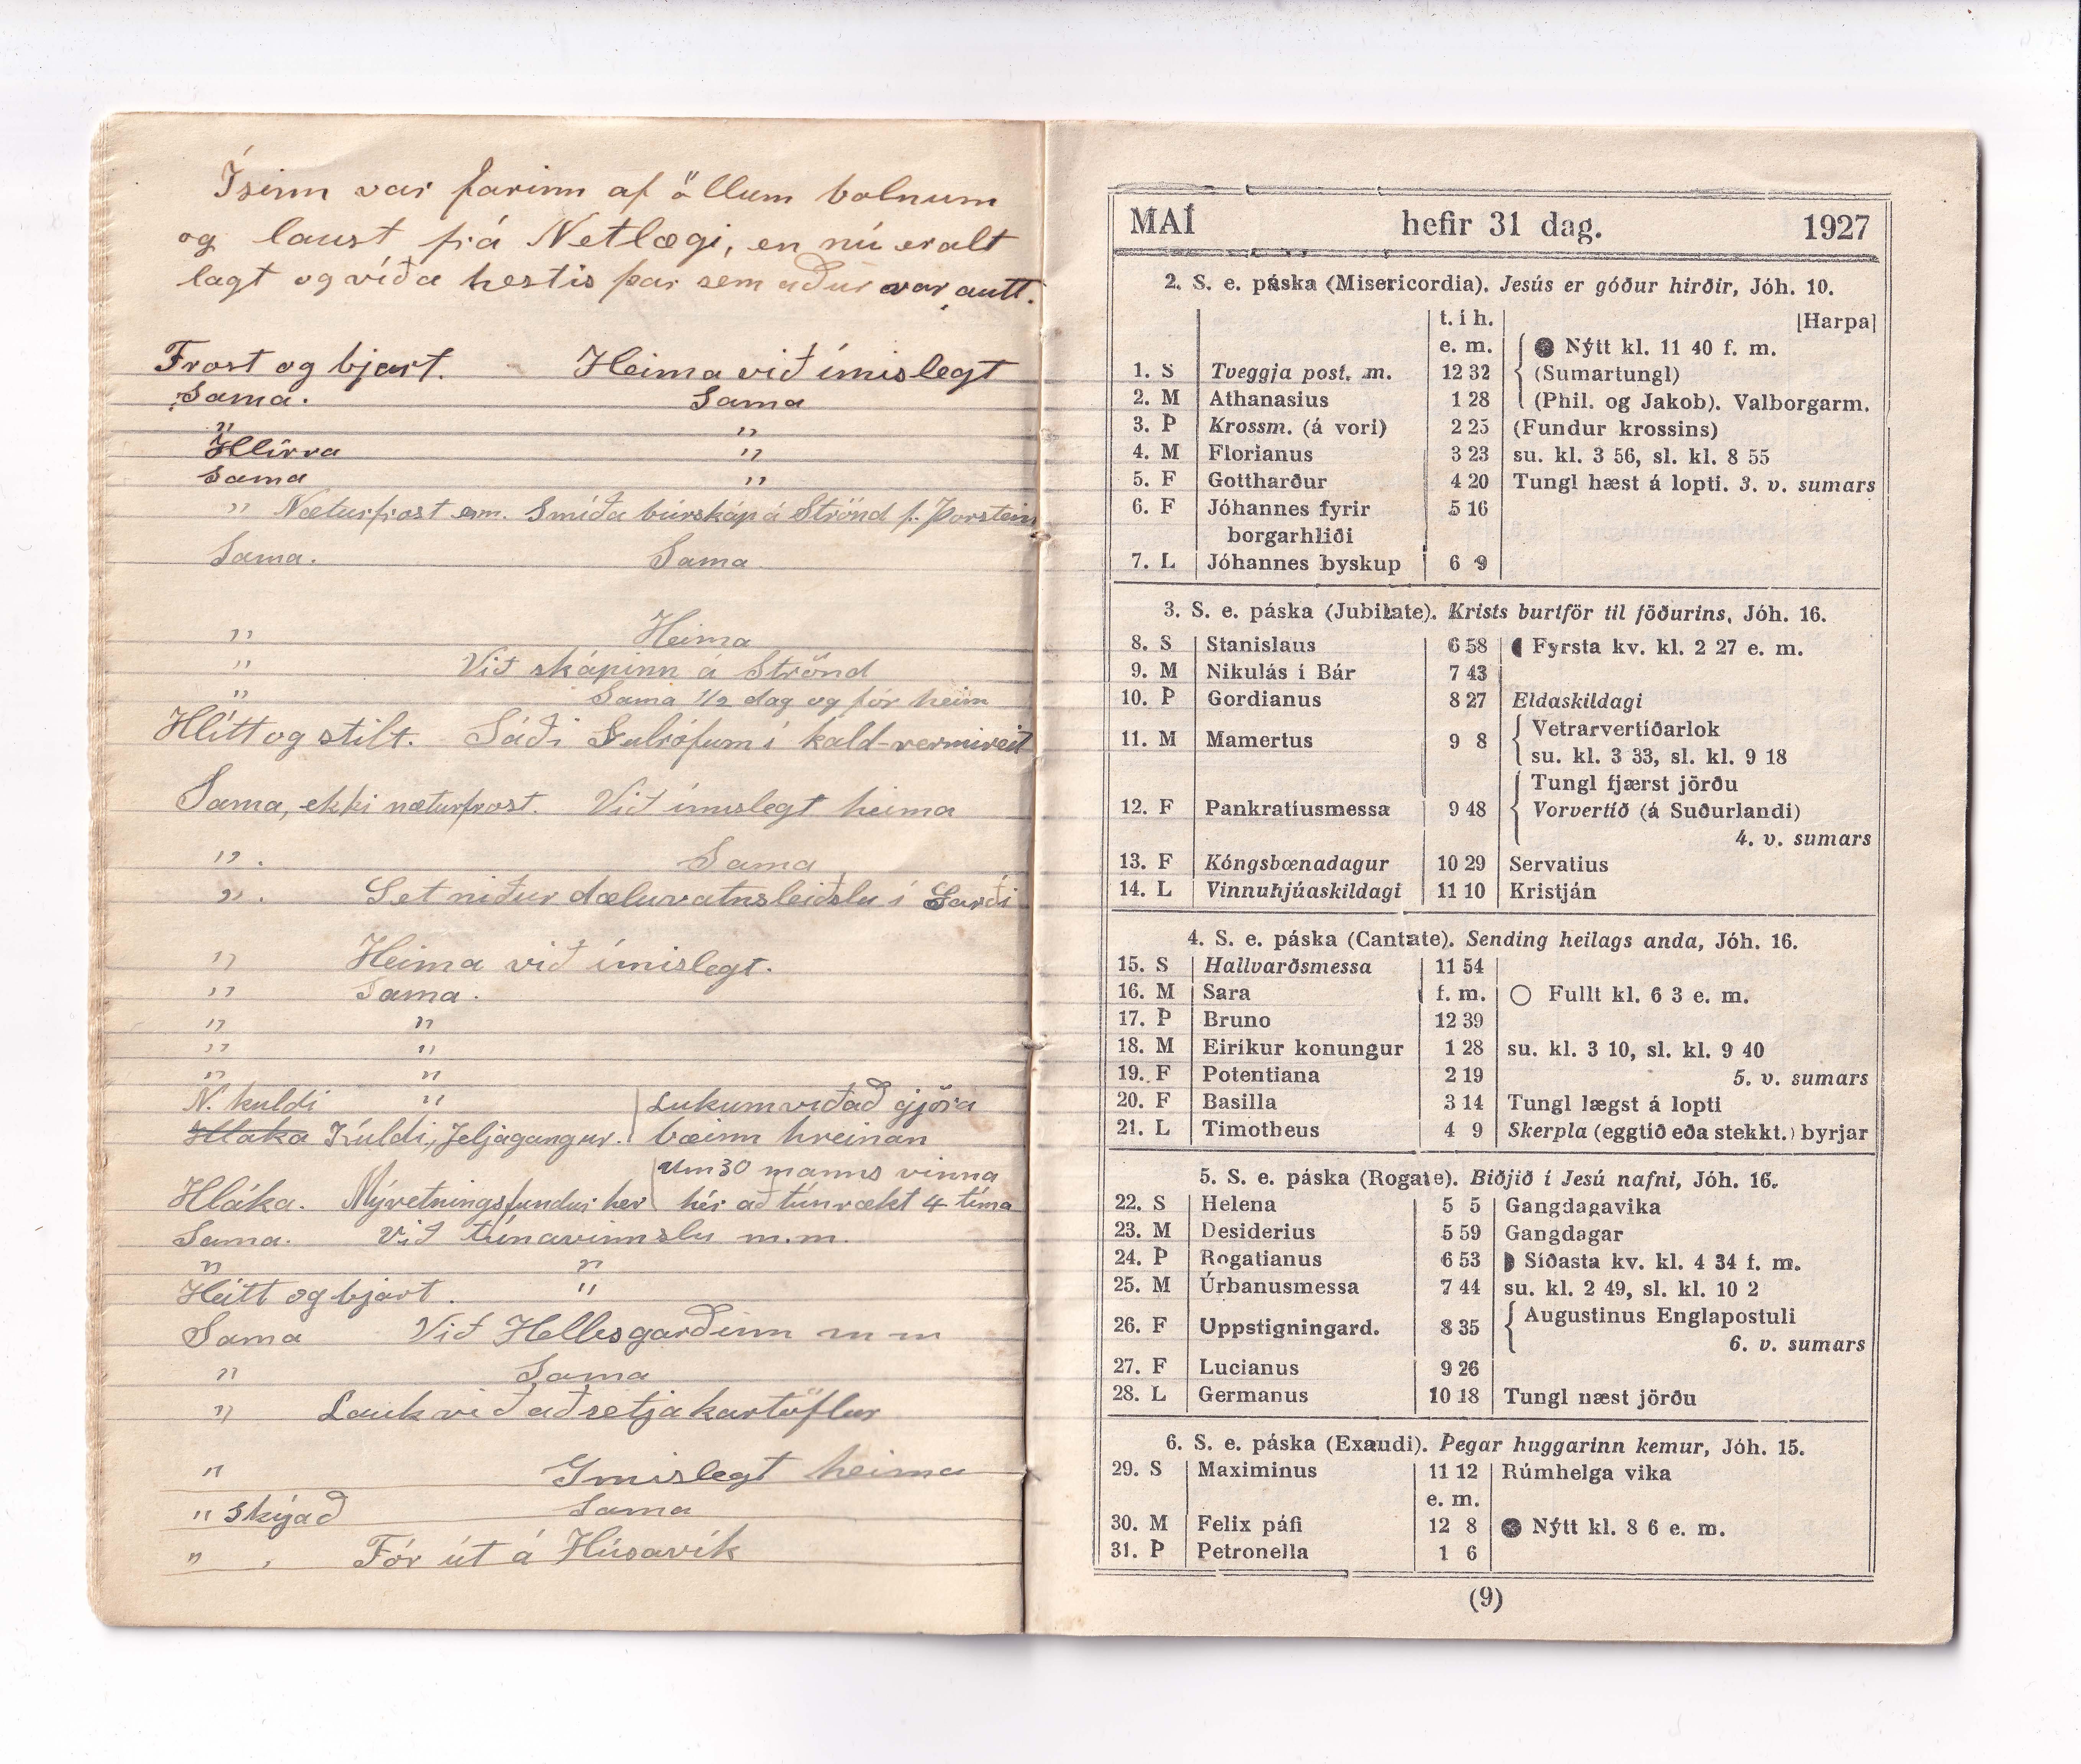 Ísinn var farinn af öllum bolnum
og laust frá Netlægi, en nú er alt
lagt og víða hestís þar sem aður var autt.
Frost og bjart. Heima við ímislegt
Sama. Sama
" "
Hlírra "
Sama "
" Næturfrost em. Smíða búrskáp á Strönd f. Þorstein
Sama. Sama
" Heima
" Við skápinn á Strönd
" Sama 1/2 dag og fór heim
Hlítt og stilt. Sáði Gulrófum í kald-vermireit
Sama, ekki næturfrost. Við ímislegt heima
" . Sama
" . Set niður dæluvatnsleiðslu í Garði
" Heima við ímislegt.
" Sama.
" "
" "
" "
N. kuldi " Lukum við að gjöra
Hláka Kuldi, Jeljagangur. bæinn hreinan
Um 30 manns vinna
Hláka. Mývetningafundur her hér að túnrækt 4 tíma
Sama. Við túnavinnslu m.m.
" "
Heitt og bjart. "
Sama Við Hellisgarðinn m m
" Sama
" Lauk við að setja kartöflur
" Ymislegt heima
" skýjað Sama
" , Fór út á Húsavík
MAÍ hefir 31 dag. 1927
2. S. e. páska (Misericordia). Jesús er góður hirðir, Jóh. 10.
t. í h. [Harpa]
e. m. ● Nýtt kl. 11 40 f. m.
1. S Tveggja post. m. 12 32 (Sumartungl)
2. M Athanasius 1 28 (Phil. og Jakob). Valborgarm.
3. Þ Krossm. (á vori) 2 25 (Fundur krossins)
4. M Florianus 3 23 su. kl. 3 56, sl. kl. 8 55
5. F Gottharður 4 20 Tungl hæst á lopti. 3. v. sumars
6. F Jóhannes fyrir 5 16
borgarhliði
7. L Jóhannes byskup 6 9
3. S. e. páska (Jubilate). Krists burtför til föðurins, Jóh. 16.
8. S Stanislaus 6 58 ◖ Fyrsta kv. kl. 2 27 e. m.
9. M Nikulás í Bár 7 43
10. Þ Gordianus 8 27 Eldaskildagi
Vetrarvertíðarlok
11. M Mamertus 9 8
su. kl. 3 33, sl. kl. 9 18
Tungl fjærst jörðu
12. F Pankratiusmessa 9 48 Vorvertíð (á Suðurlandi)
4. v. sumars
13. F Kóngsbænadagur 10 29 Servatius
14. L Vinnuhjúaskildagi 11 10 Kristján
4. S. e. páska (Cantate). Sending heilags anda, Jóh. 16.
15. S Hallvarðsmessa 11 54
16. M Sara f. m. ○ Fullt kl. 6 3 e. m.
17. Þ Bruno 12 39
18. M Eiríkur konungur 1 28 su. kl. 3 10, sl. kl. 9 40
19. F Potentiana 2 19 5. v. sumars
20. F Basilla 3 14 Tungl lægst á lopti
21. L Timotheus 4 9 Skerpla (eggtíð eða stekkt.) byrjar
5. S. e. páska (Rogate). Biðjið í Jesú nafni, Jóh. 16.
22. S Helena 5 5 Gangdagavika
23. M Desiderius 5 59 Gangdagar
24. Þ Rogatianus 6 53 ◗ Síðasta kv. kl. 4 34 f. m.
25. M Úrbanusmessa 7 44 su. kl. 2 49, sl. kl. 10 2
Augustinus Englapostuli
26. F Uppstigningard. 8 35
6. v. sumars
27. F Lucianus 9 26
28. L Germanus 10 18 Tungl næst jörðu
6. S. e. páska (Exaudi). Þegar huggarinn kemur, Jóh. 15.
29. S Maximinus 11 12 Rúmhelga vika
e. m.
30. M Felix páfi 12 8 ● Nýtt kl. 8 6 e. m.
31. Þ Petronella 1 6
(9)